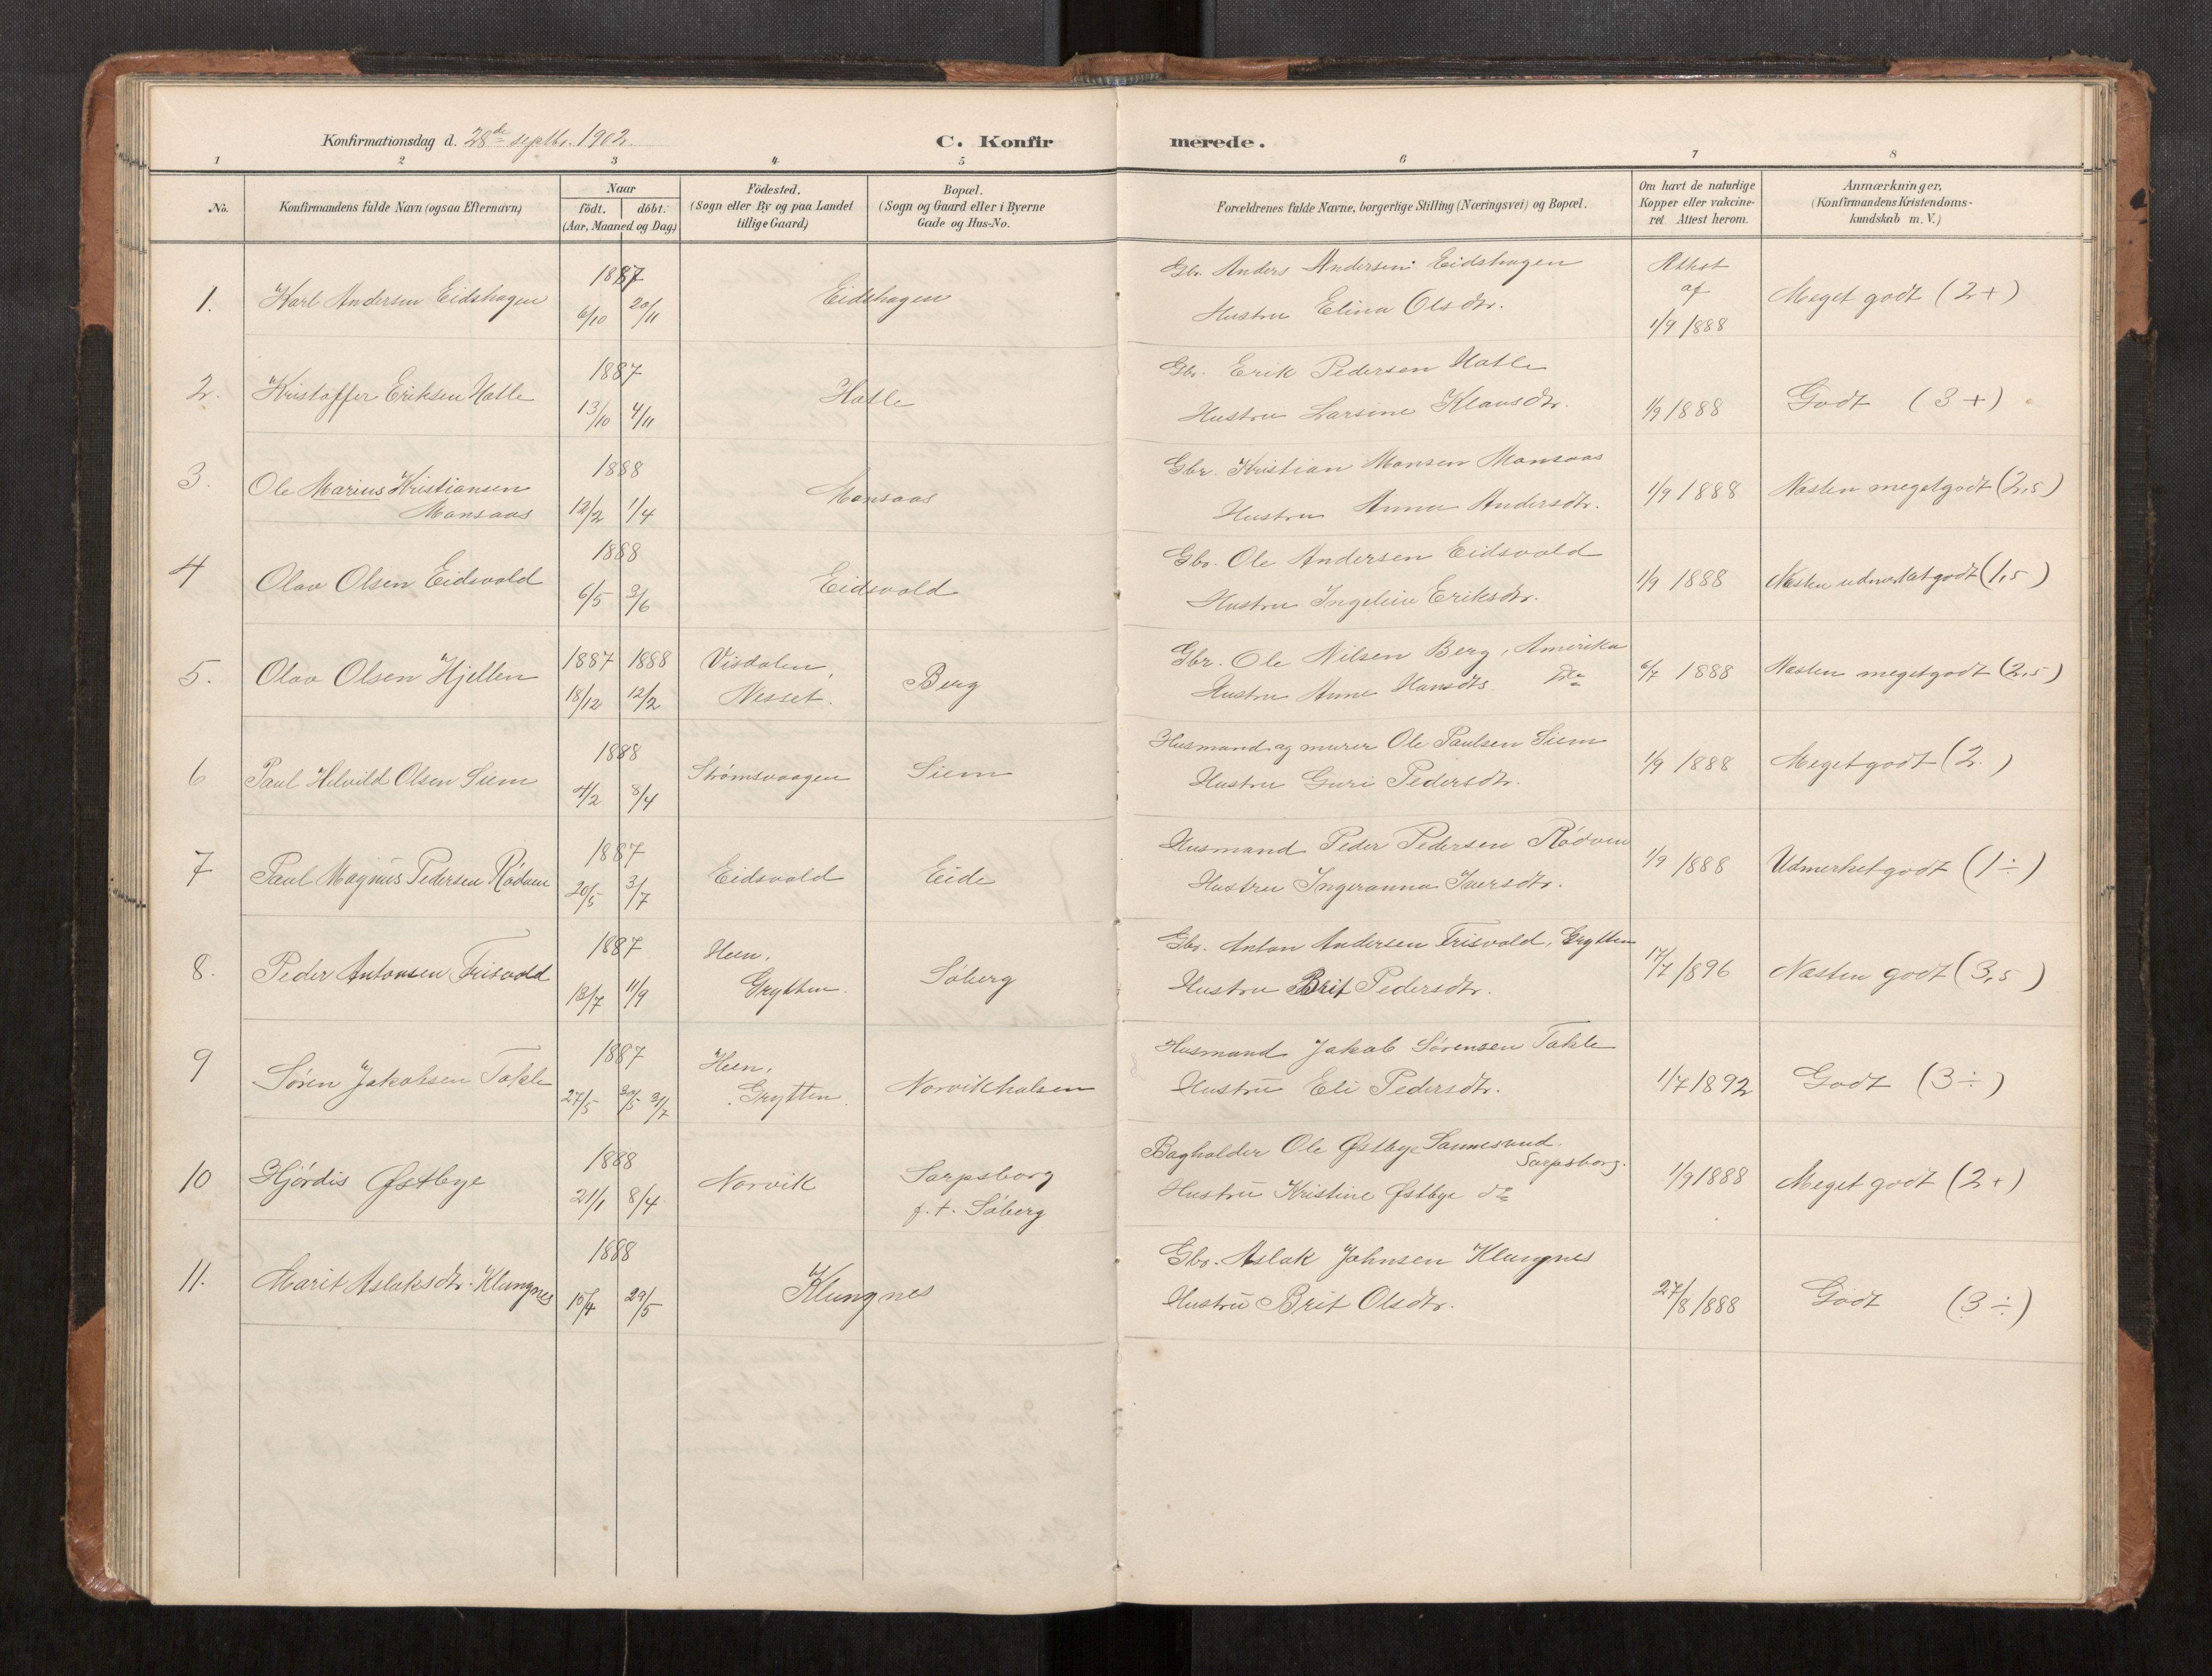 Konfirmationsdag d. 28de septbr. 1902
C. Konfirmerede.
1 2 3 4 5 6 7 8
No.
Konfirmandens fulde Navn (ogsaa Efternavn)
Naar
födt. döbt.
(Aar, Maaned og Dag)
Födested.
(Sogn eller By og paa Landet
tillige Gaard)
Bopæl.
(Sogn og Gaard eller i Byerne
Gade og Hus-No.
Forældrenes fulde Navne, borgerlige Stilling (Næringsvei) og Bopæl.
Om havt de naturlige
Kopper eller vakcine-
ret Attest herom.
Anmærkninger,
(Konfirmandens Kristendoms-
kundskab m. V.)
1. Karl Andersen Eidshagen
1887
6/10 20/11
Eidshagen
Gbr. Anders Andersen Eidshagen
Hustru Elina Olsdtr.
Attest
af
1/9 1888
Meget godt (2+)
2. Kristoffer Eriksen Hatle
1887
13/10 4/11
Hatle
Gbr. Erik Pedersen Hatle
Hustru Larsine Klausdtr.
1/9 1888
Godt (3+)
3. Ole Marius Kristiansen
Monsaas
1888
12/2 1/4
Monsaas
Gbr. Kristian Monsen Monsaas
Hustru Anna Andersdtr.
1/9 1888
Næsten meget godt (2,5)
4 Olav Olsen Eidsvold
1888
6/5 3/6
Eidsvold
Gbr. Ole Andersen Eidsvold
Hustru Ingeline Eriksdtr.
1/9 1888
Næsten udmerket godt (1,5)
5. Olav Olsen Hjellen
1887 1888
18/12 12/2
Visdalen,
Nesset.
Berg
Gbr. Ole Nilsen Berg, Amerika
Hustru Anne Hansdtr.
6/7 1888
Næsten meget godt (2,5)
6 Paul Hilvild Olsen Siem
1888
4/2 8/4
Strømsvaagen
Siem
Husmand og murer Ole Paulsen Siem
Hustru Guri Pedersdtr.
1/9 1888
Meget godt (2.)
7 Paul Magnus Pedersen Rödven
1887
20/5 3/7
Eidsvold
Eide
Husmand Peder Pedersen Rödven
Hustru Ingeranna Iversdtr.
1/9 1888
Udmerket godt (1÷)
8. Peder Antonsen Frisvold
1887
13/7 11/9
Heen,
Grytten.
Söberg
Gbr. Anton Andersen Frisvold, Grytten
Hustru Brit Pedersdtr.
17/7 1896
Næsten godt (3,5)
9 Sören Jakobsen Tokle
1887
27/5 30/5 31/7
Heen,
Grytten.
Norvikhalsen
Husmand Jakob Sörensen Tokle
Hustru Eli Pedersdtr.
1/7 1892
Godt (3÷)
10 Hjördis Østbye
1888
21/1 8/4
Norvik
Sarpsborg
f. t. Söberg
Bogholder Ole Østbye Sannesund
Sarpsborg.
Hustru Kristine Østbye do
1/9 1888
Meget godt (2+)
11. Marit Aslaksdtr. Klungnes
1888
15/4 29/5
Klungnes
Gbr. Aslak Johnsen Klungnes
Hustru Brit Olsdtr.
27/8 1888
Godt (3÷)